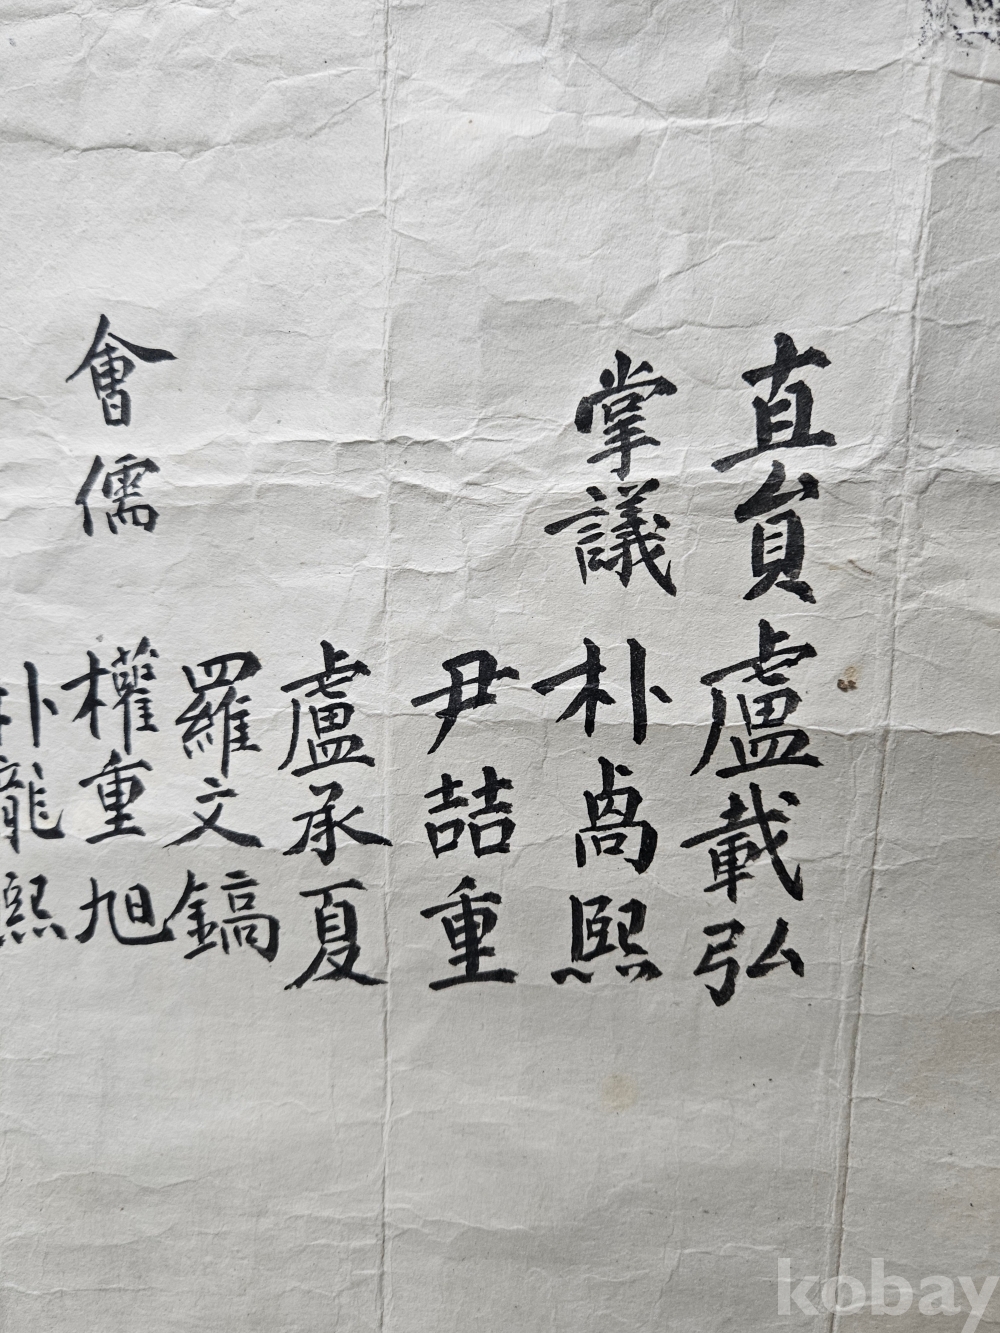 直貟 盧載弘
掌議 朴卨熙
尹喆重
盧承夏
羅文鎬
會儒 權重旭
朴龍熙
kobay